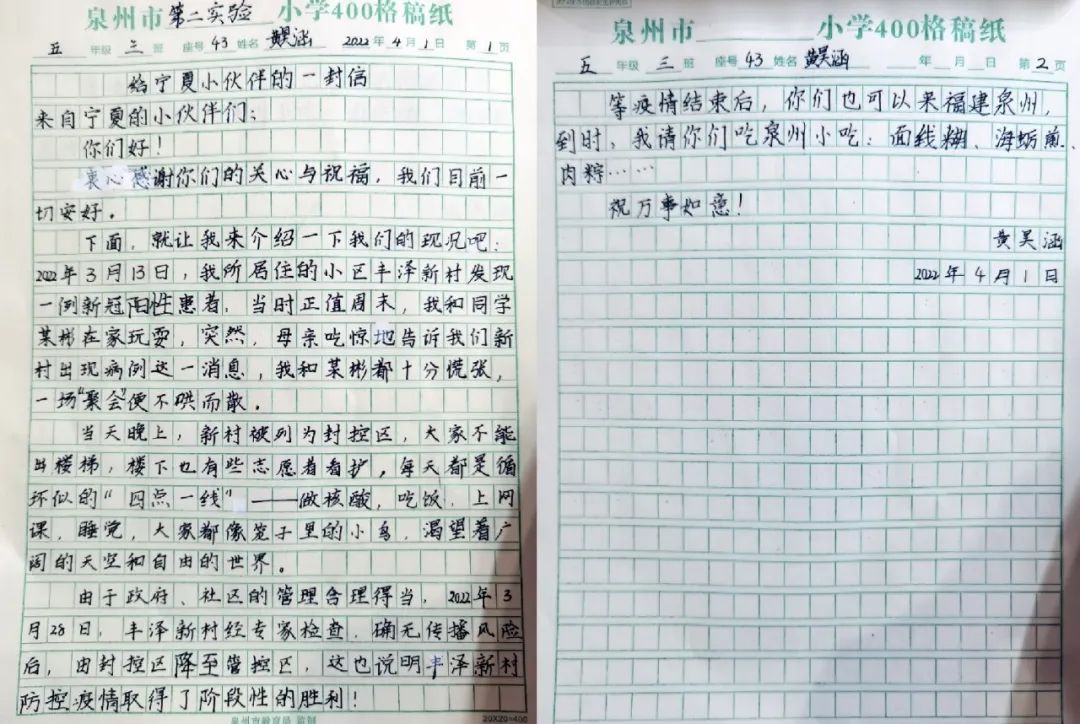 泉州市第二实验小学400格稿纸
五年级三班 座号43姓名黄昊涵 2022年4月1日 第1页
给宁夏小伙伴的一封信
来自宁夏的小伙伴们：
你们好！
衷心感谢你们的关心与祝福，我们目前一
切安好。
下面，就让我来介绍一下我们的现况吧：
2022年3月13日，我所居住的小区丰泽新村发现
一例新冠阳性患者。当时正值周末，我和同学
某彬在家玩耍，突然，母亲吃惊地告诉我们新
村出现病例这一消息，我和某彬都十分慌张，
一场“聚会”便不哄而散。
当天晚上，新村被列为封控区，大家不能
出楼梯，楼下也有些志愿者看护，每天都是循
环似的“四点一线”——做核酸，吃饭，上网
课，睡觉，大家都像笼子里的小鸟，渴望着广
阔的天空和自由的世界。
由于政府、社区的管理合理得当，2022年3
月28日，丰泽新村经专家检查，确无传播风险
后，由封控区降至管控区，这也说明丰泽新村
防控疫情取得了阶段性的胜利！
泉州市教育局 监制
20X20=400
泉州市 小学400格稿纸
五年级三班 座号43姓名黄昊涵 年 月 日 第2页
等疫情结束后，你们也可以来福建泉州，
到时，我请你们吃泉州小吃：面线糊、海蛎煎、
肉粽……
祝万事如意！
黄昊涵
2022年4月1日